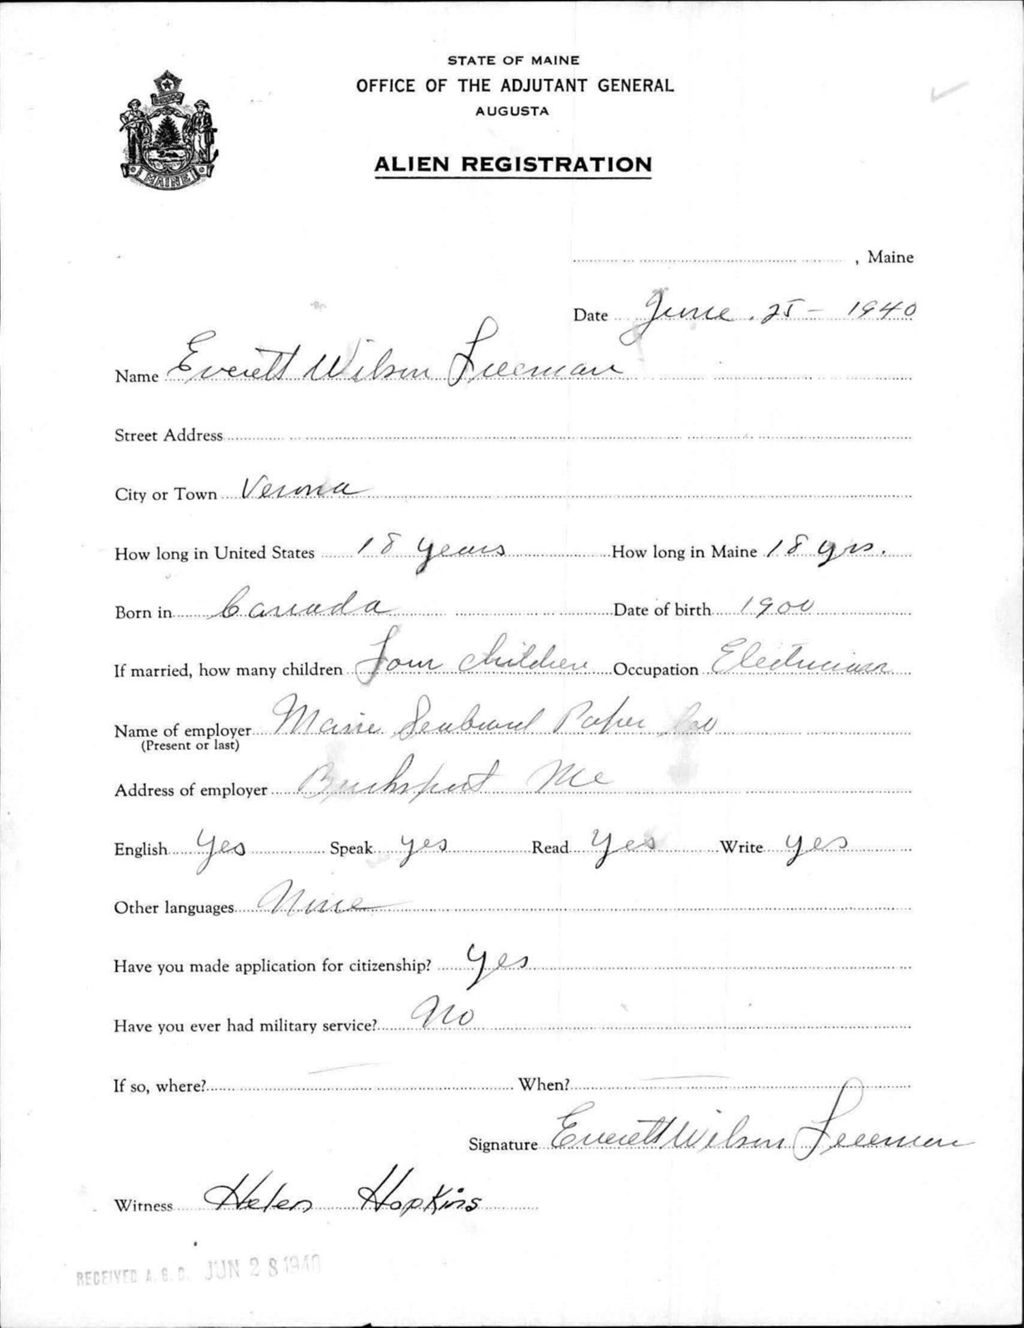 STATE OF MAINE
OFFICE OF THE ADJUTANT GENERAL
AUGUSTA
ALIEN REGISTRATION
MAINE
, Maine
Date June 25 - 1940
Name Everett Wilson Freeman
Street Address
City or Town Verona
How long in United States 18 years How long in Maine 18 yrs.
Born in Canada Date of birth 1900
If married, how many children Four children Occupation Electrician
Name of employer Maine Seaboard Paper Co
(Present or last)
Address of employer Bucksport Me
English Yes Speak yes Read Yes Write yes
Other languages None
Have you made application for citizenship? Yes
Have you ever had military service? No
If so, where? — When? —
Signature Everett Wilson Freeman
Witness Helen Hopkins
RECEIVED A. G. O. JUN 28 1940